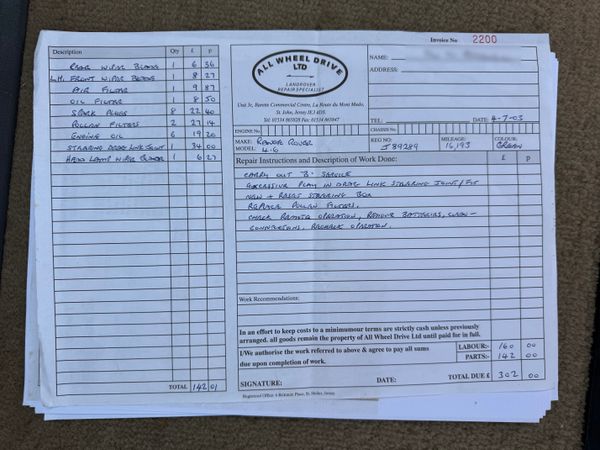 Invoice No 2200
Description Qty £ p
REAR WIPER BLADE 1 6 36
L.H. FRONT WIPER BLADE 1 8 27
AIR FILTER 1 9 87
OIL FILTER 1 8 50
SPARK PLUGS 8 22 40
POLLAN FILTERS 2 27 14
ENGINE OIL 6 19 20
STEARING DRAG LINK JOINT 1 34 00
HEAD LAMP WIPER BLADE 1 6 27
TOTAL 142 01
ALL WHEEL DRIVE
LTD
LANDROVER
REPAIR SPECIALIST
Unit 3c, Barette Commercial Centre, La Route du Mont Mado,
St. John, Jersey JE3 4DS.
Tel: 01534 865928 Fax: 01534 865847
NAME:
ADDRESS:
TEL: DATE: 4-7-03
ENGINE No. CHASSIS No.
MAKE: RANGE ROVER REG NO: J89289 MILEAGE: 16,193 COLOUR: GREEN
MODEL: 4.6
Repair Instructions and Description of Work Done: £ p
CARRY OUT 'B' SERVICE
EXCESSIVE PLAY IN DRAG LINK STEARING JOINT / FIT
NEW + RESET STEARING BOX
REPLACE POLLAN FILTERS.
CHECK REMOTE OPARATION, REMOVE BATTERIES, CLEAN
CONNECTIONS, RECHECK OPARATION.
Work Recommendations:
In an effort to keep costs to a minimumour terms are strictly cash unless previously
arranged. all goods remain the property of All Wheel Drive Ltd until paid for in full.
I/We authorise the work referred to above & agree to pay all sums
due upon completion of work.
LABOUR:- 160 00
PARTS:- 142 00
SIGNATURE: DATE: TOTAL DUE £ 302 00